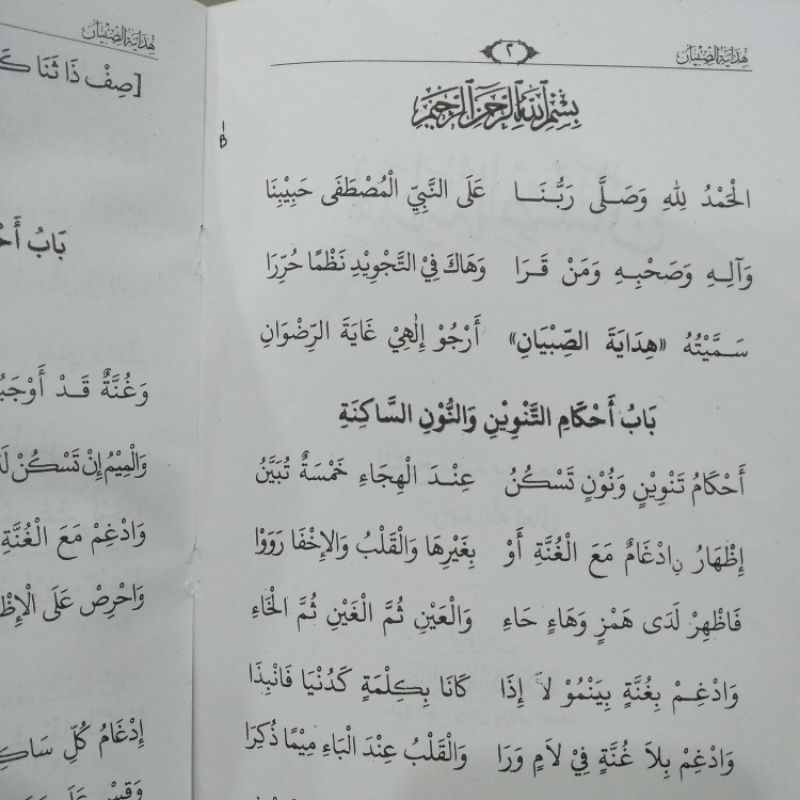 هِدَايَةُ الصِّبْيَانْ
٢
بِسْمِ ٱللَّهِ ٱلرَّحْمَٰنِ ٱلرَّحِيمِ
الْحَمْدُ لِلهِ وَصَلَّى رَبُّنَا عَلَى النَّبِيِّ الْمُصْطَفَى حَبِيْبِنَا
وَآلِهِ وَصَحْبِهِ وَمَنْ قَرَا وَهَاكَ فِيْ التَّجْوِيْدِ نَظْمًا حُرِّرَا
سَمَّيْتُهُ «هِدَايَةَ الصِّبْيَانِ» أَرْجُوْ إِلٰهِيْ غَايَةَ الرِّضْوَانِ
بَابُ أَحْكَامِ التَّنْوِيْنِ وَالنُّوْنِ السَّاكِنَةِ
أَحْكَامُ تَنْوِيْنٍ وَنُوْنٍ تَسْكُنُ عِنْدَ الْهِجَاءِ خَمْسَةٌ تُبَيَّنُ
إِظْهَارُ نِادْغَامٌ مَعَ الْغُنَّةِ أَوْ بِغَيْرِهَا وَالْقَلْبُ وَالإِخْفَا رَوَوْا
فَاظْهِرْ لَدَى هَمْزٍ وَهَاءٍ حَاءِ وَالْعَيْنِ ثُمَّ الْغَيْنِ ثُمَّ الْخَاءِ
وَادْغِمْ بِغُنَّةٍ بِيَنْمُوْ لاَ إِذَا كَانَا بِكِلْمَةٍ كَدُنْيَا فَانْبِذَا
وَادْغِمْ بِلاَ غُنَّةٍ فِيْ لاَمٍ وَرَا وَالْقَلْبُ عِنْدَ الْبَاءِ مِيْمًا ذُكِرَا
هِدَايَةُ الصِّبْيَانْ
[صِفْ ذَا ثَنَا
بَابُ
وَغُنَّةٌ قَدْ
وَالْمِيْمُ إِنْ تَسْكُنْ
وَادْغِمْ مَعَ الْغُنَّةِ
وَاحْرِصْ عَلَى
إِدْغَامُ كُلِّ